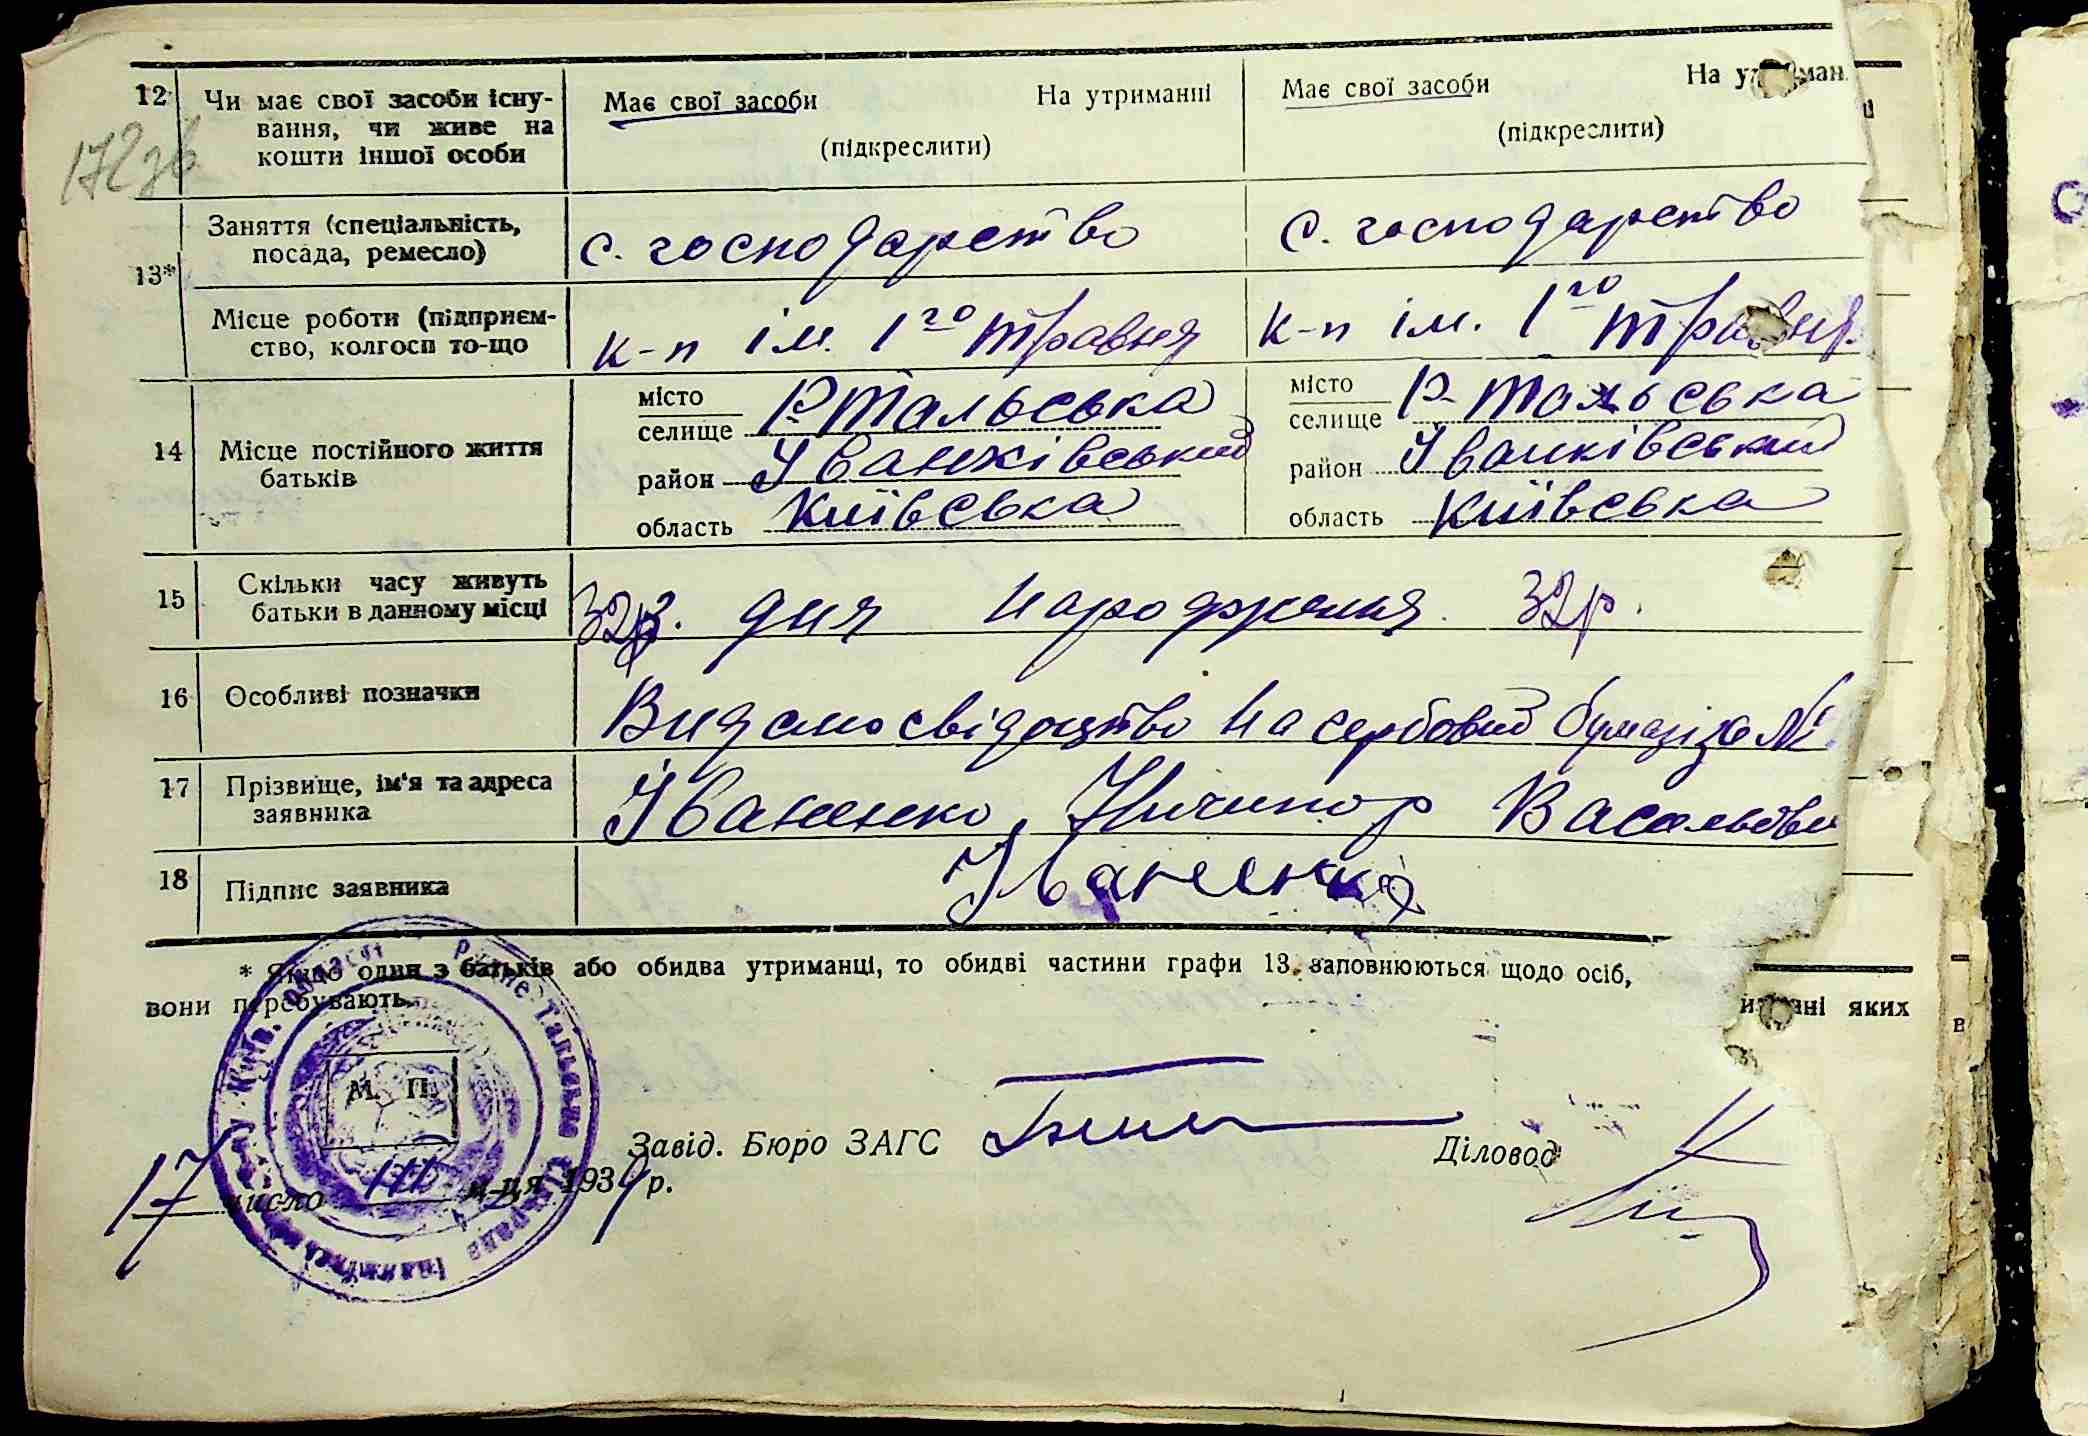 12 Чи має свої засоби існу- Має свої засоби На утриманні Має свої засоби На ут ман
вання, чи живе на
кошти іншої особи (підкреслити) (підкреслити)
172зв
13* Заняття (спеціальність, с. господарство с. господарство
посада, ремесло)
Місце роботи (підприєм- к-п ім. 1го травня к-п ім. 1го травня
ство, колгосп то-що
14 Місце постійного життя місто Р. Тальська місто Р. Тальська
батьків селище селище
район Іванківський район Іванківський
область Київська область Київська
15 Скільки часу живуть 32р. дня народження. 32р.
батьки в данному місці
16 Особливі позначки Видано свідоцтво на гербовий бумазі за №
17 Прізвище, ім'я та адреса Іваненко, Ничипор Васильови
заявника
18 Підпис заявника Іваненко
* Якщо один з батьків або обидва утриманці, то обидві частини графи 13 заповнюються щодо осіб,
вони перебувають. ні яких
М. П.
Завід. Бюро ЗАГС Діловод
17 число м-ця 1934 р.